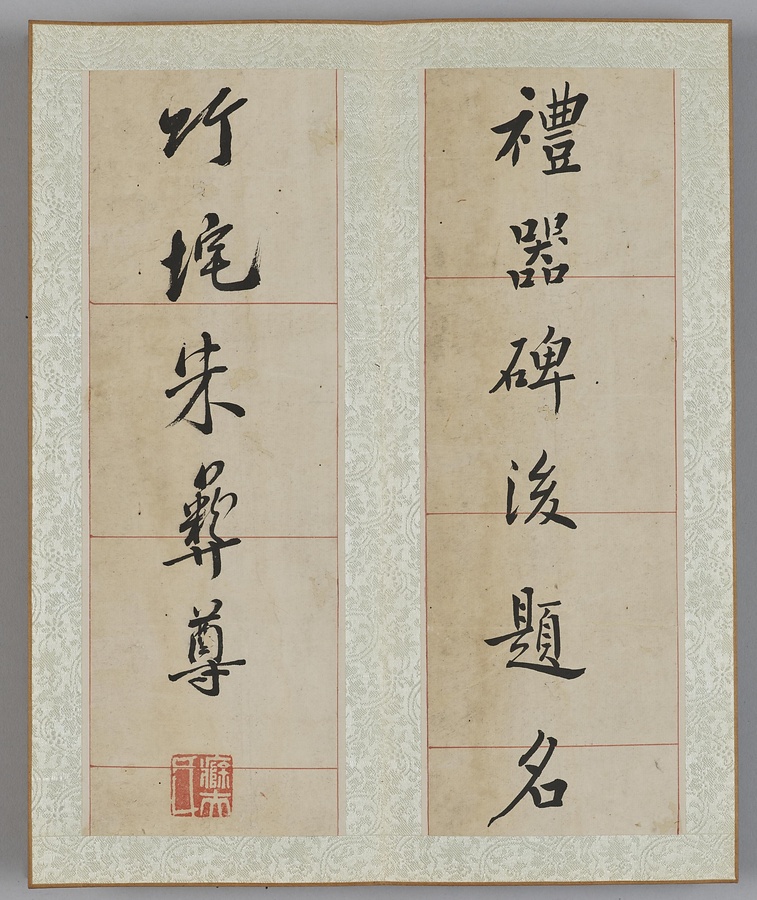 禮器碑後題名
竹垞朱彝尊